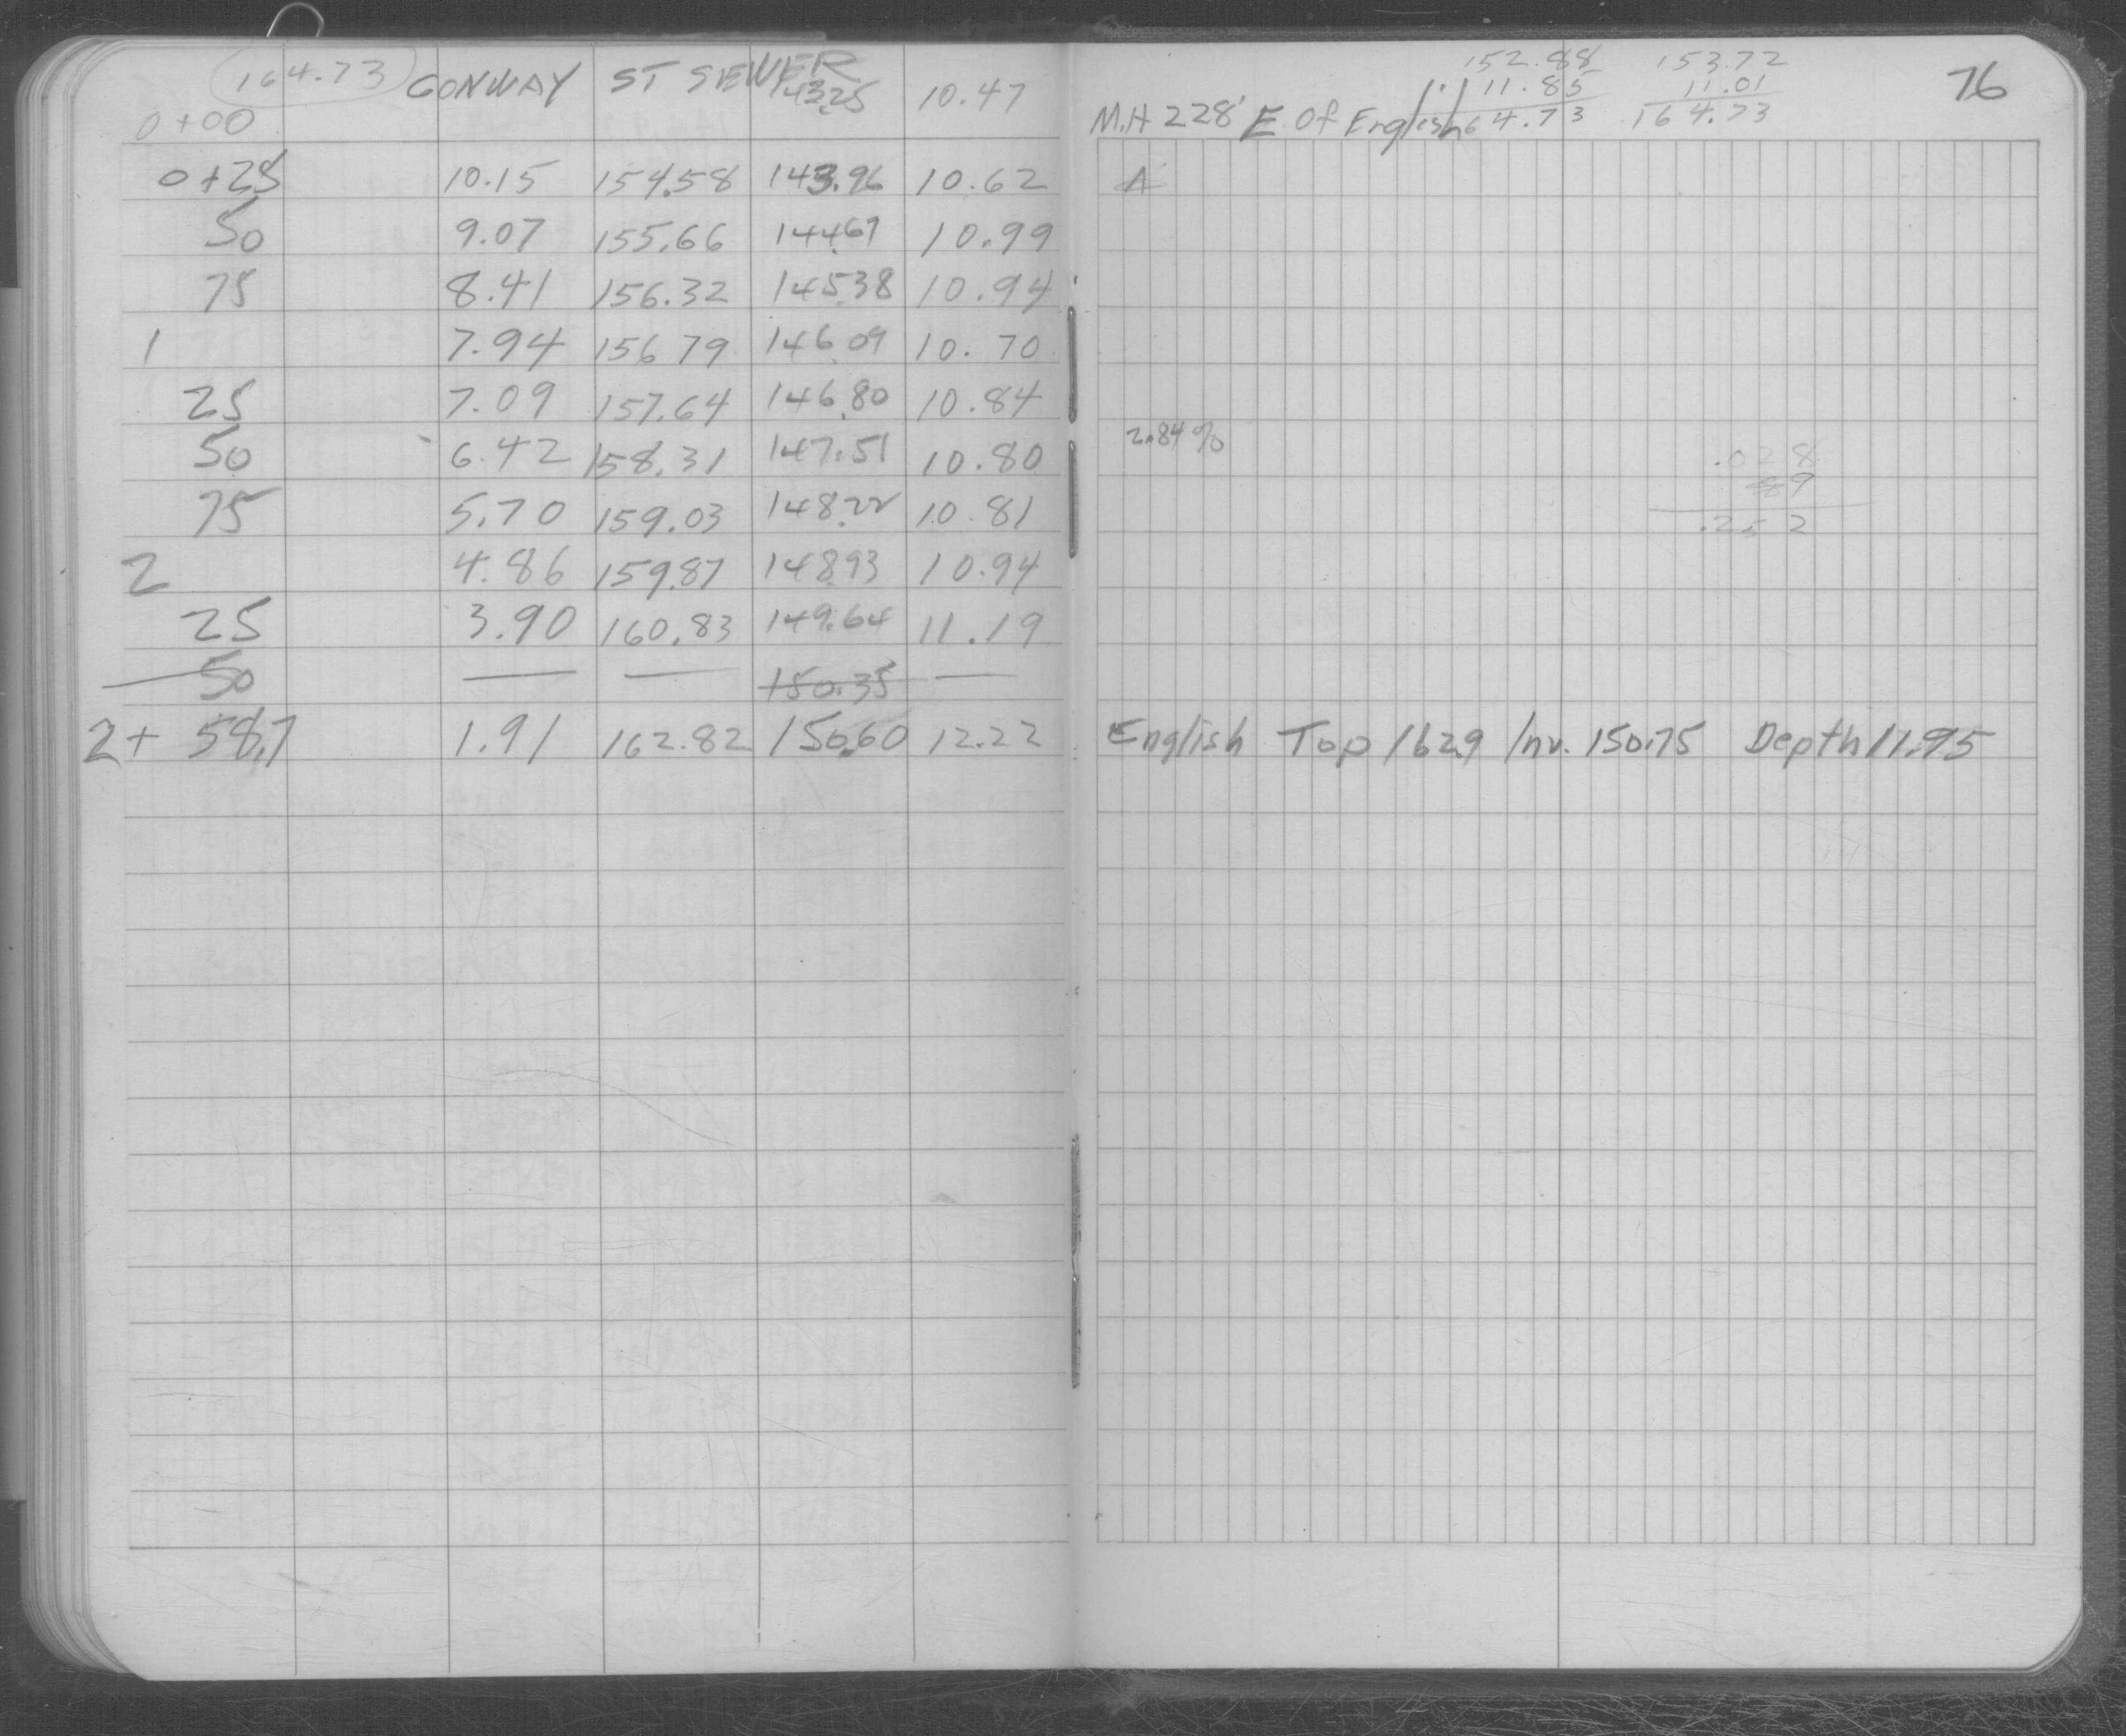 164.73 CONWAY ST SEWER
0+00 143.25 10.47
0+25 10.15 154.58 143.96 10.62
50 9.07 155.66 144.67 10.99
75 8.41 156.32 145.38 10.94
1 7.94 156 79 146.09 10.70
25 7.09 157.64 146.80 10.84
50 6.42 158.31 147.51 10.80
75 5.70 159.03 148.22 10.81
2 4.86 159.87 148.93 10.94
25 3.90 160.83 149.64 11.19
50 — — 150.35 —
2+ 58.7 1.91 162.82 150.60 12.22
76
152.88 153.72
11.85 11.01
164.73 164.73
M.H 228' E. Of English
A
2.84%
.028
9
.252
English Top 162.9 Inv. 150.75 Depth 11.95